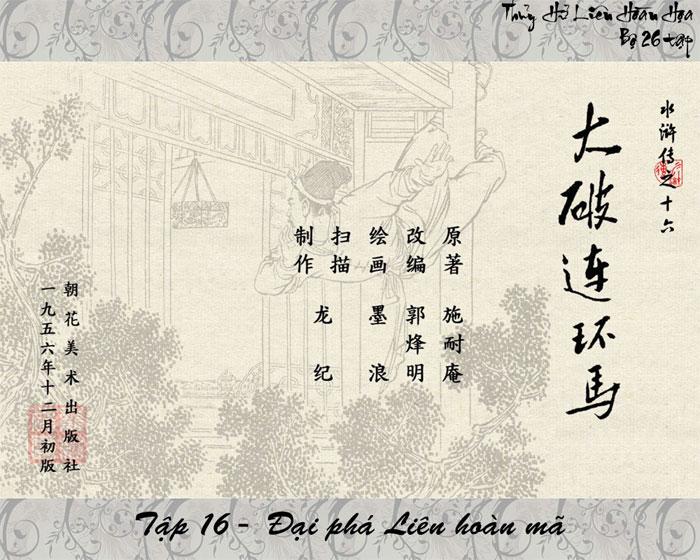 Thủy Hử Liên Hoàn Họa
Bộ 26 tập
水浒传之十六
大破连环马
原著 施耐庵
改编 郭烽明
绘画 墨浪
扫描
制作 龙纪
朝花美术出版社
一九五六年十二月初版
Tập 16 - Đại phá Liên hoàn mã